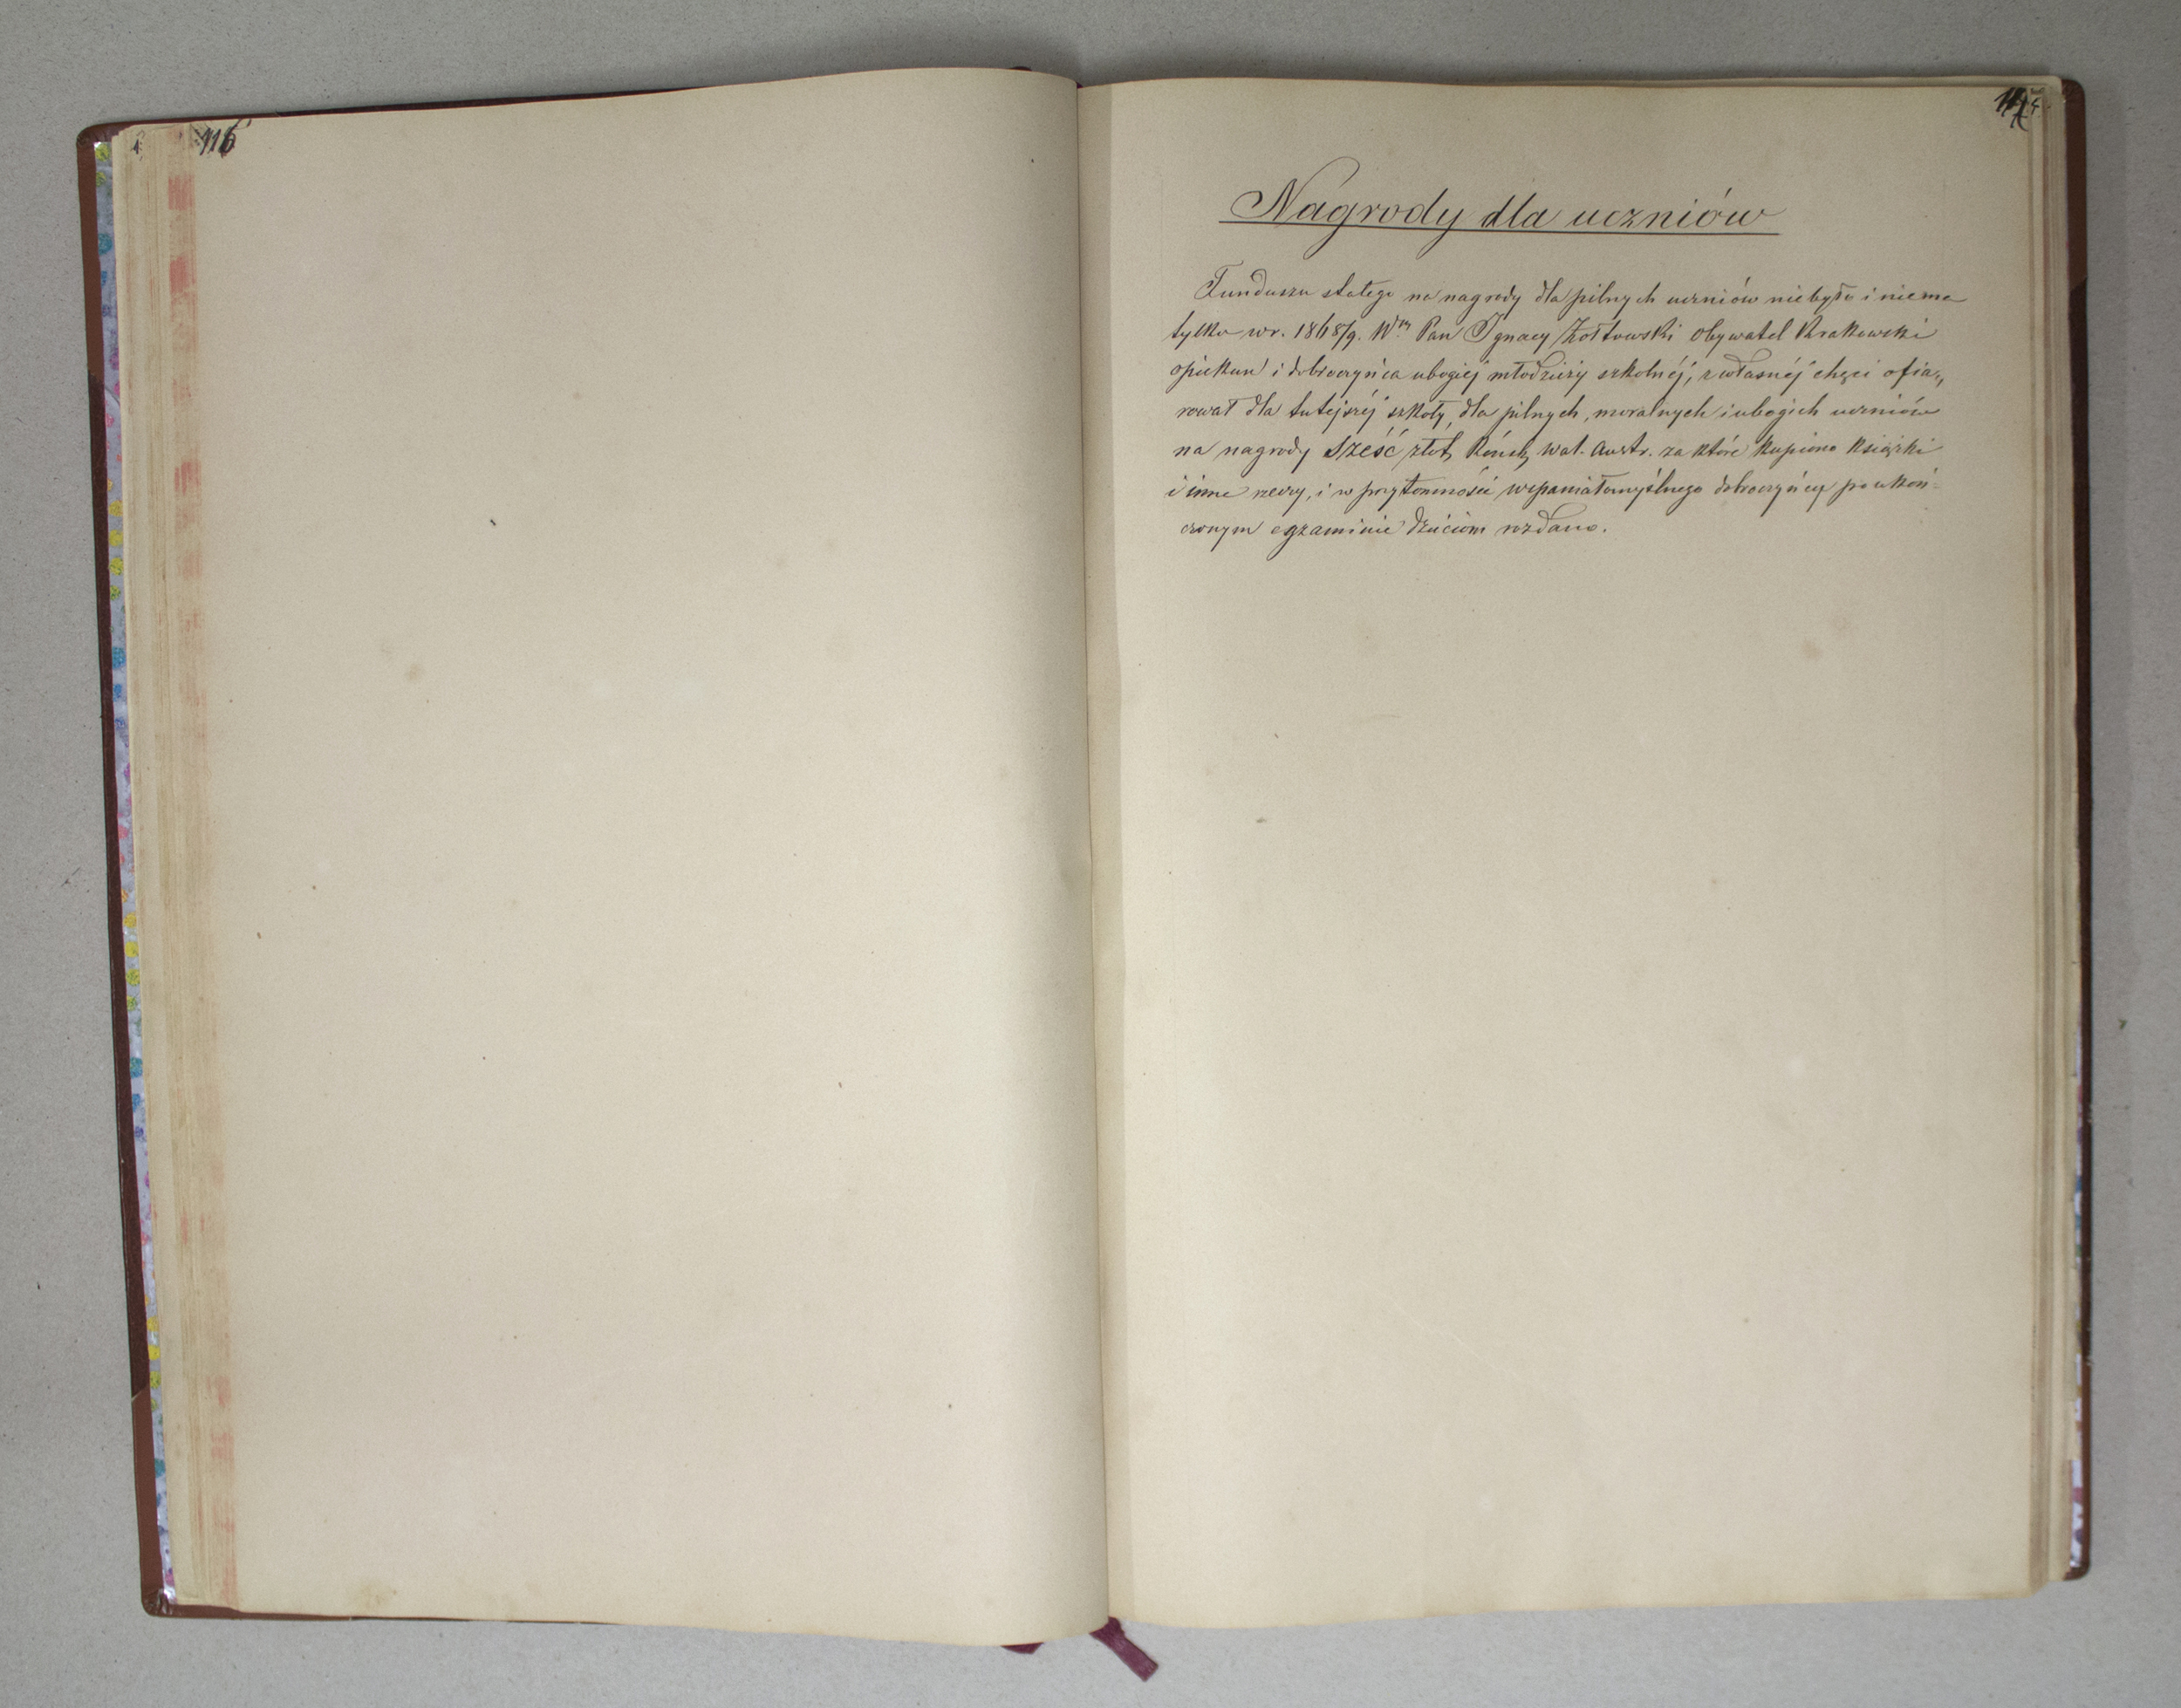 116
117
Nagrody dla uczniów
Funduszu stałego na nagrody dla pilnych uczniów niebyło i niema
tylko w r. 1868/9. Wny Pan Ignacy Żołtowski Obywatel Krakowski
opiekun i dobroczyńca ubogiej młodzieży szkolnéj, z własnéj chęci ofia„
rował dla tutejszéj szkoły, dla pilnych, moralnych i ubogich uczniów
na nagrody Sześć złot. Réńsk. wal. Austr. za które kupiono Książki
i inne rzeczy, i w przytomności wspaniałomyślnego dobroczyńcy po ukoń=
czonym egzaminie dzieciom rozdano.